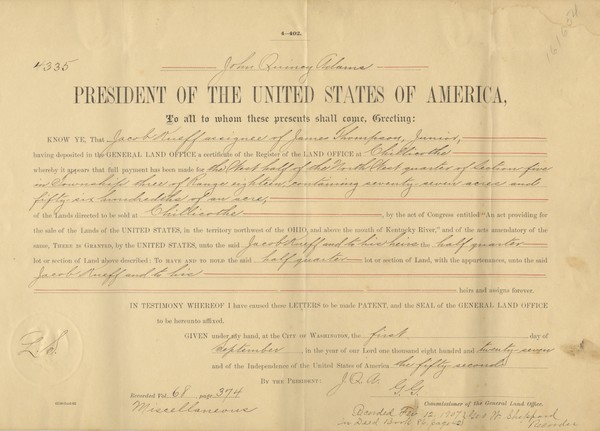 4—402.
161654
4335 John Quincy Adams
PRESIDENT OF THE UNITED STATES OF AMERICA,
To all to whom these presents shall come, Greeting:
KNOW YE, That Jacob Rueff assignee of James Thompson, Junior,
having deposited in the GENERAL LAND OFFICE a certificate of the Register of the LAND OFFICE at Chillicothe
whereby it appears that full payment has been made for the West half of the North West quarter of Section five
in Township three of Range eighteen, containing seventy seven acres and
fifty six hundredths of an acre,
of the Lands directed to be sold at Chillicothe, by the act of Congress entitled "An act providing for
the sale of the Lands of the UNITED STATES, in the territory northwest of the OHIO, and above the mouth of Kentucky River," and of the acts amendatory of the
same, THERE IS GRANTED, by the UNITED STATES, unto the said Jacob Rueff and to his heirs the half quarter
lot or section of Land above described: TO HAVE AND TO HOLD the said half quarter lot or section of Land, with the appurtenances, unto the said
Jacob Rueff and to his
heirs and assigns forever.
IN TESTIMONY WHEREOF I have caused these LETTERS to be made PATENT, and the SEAL of the GENERAL LAND OFFICE
to be hereunto affixed.
GIVEN under my hand, at the CITY OF WASHINGTON, the first day of
September, in the year of our Lord one thousand eight hundred and twenty seven
and of the Independence of the United States of America the fifty second.
L.S.
BY THE PRESIDENT: J. Q. A.
G. G.
Recorded Vol. 68 page 374
Commissioner of the General Land Office.
Miscellaneous
Recorded 12, 1907
in Deed Book page
W. Sheppard
Recorder